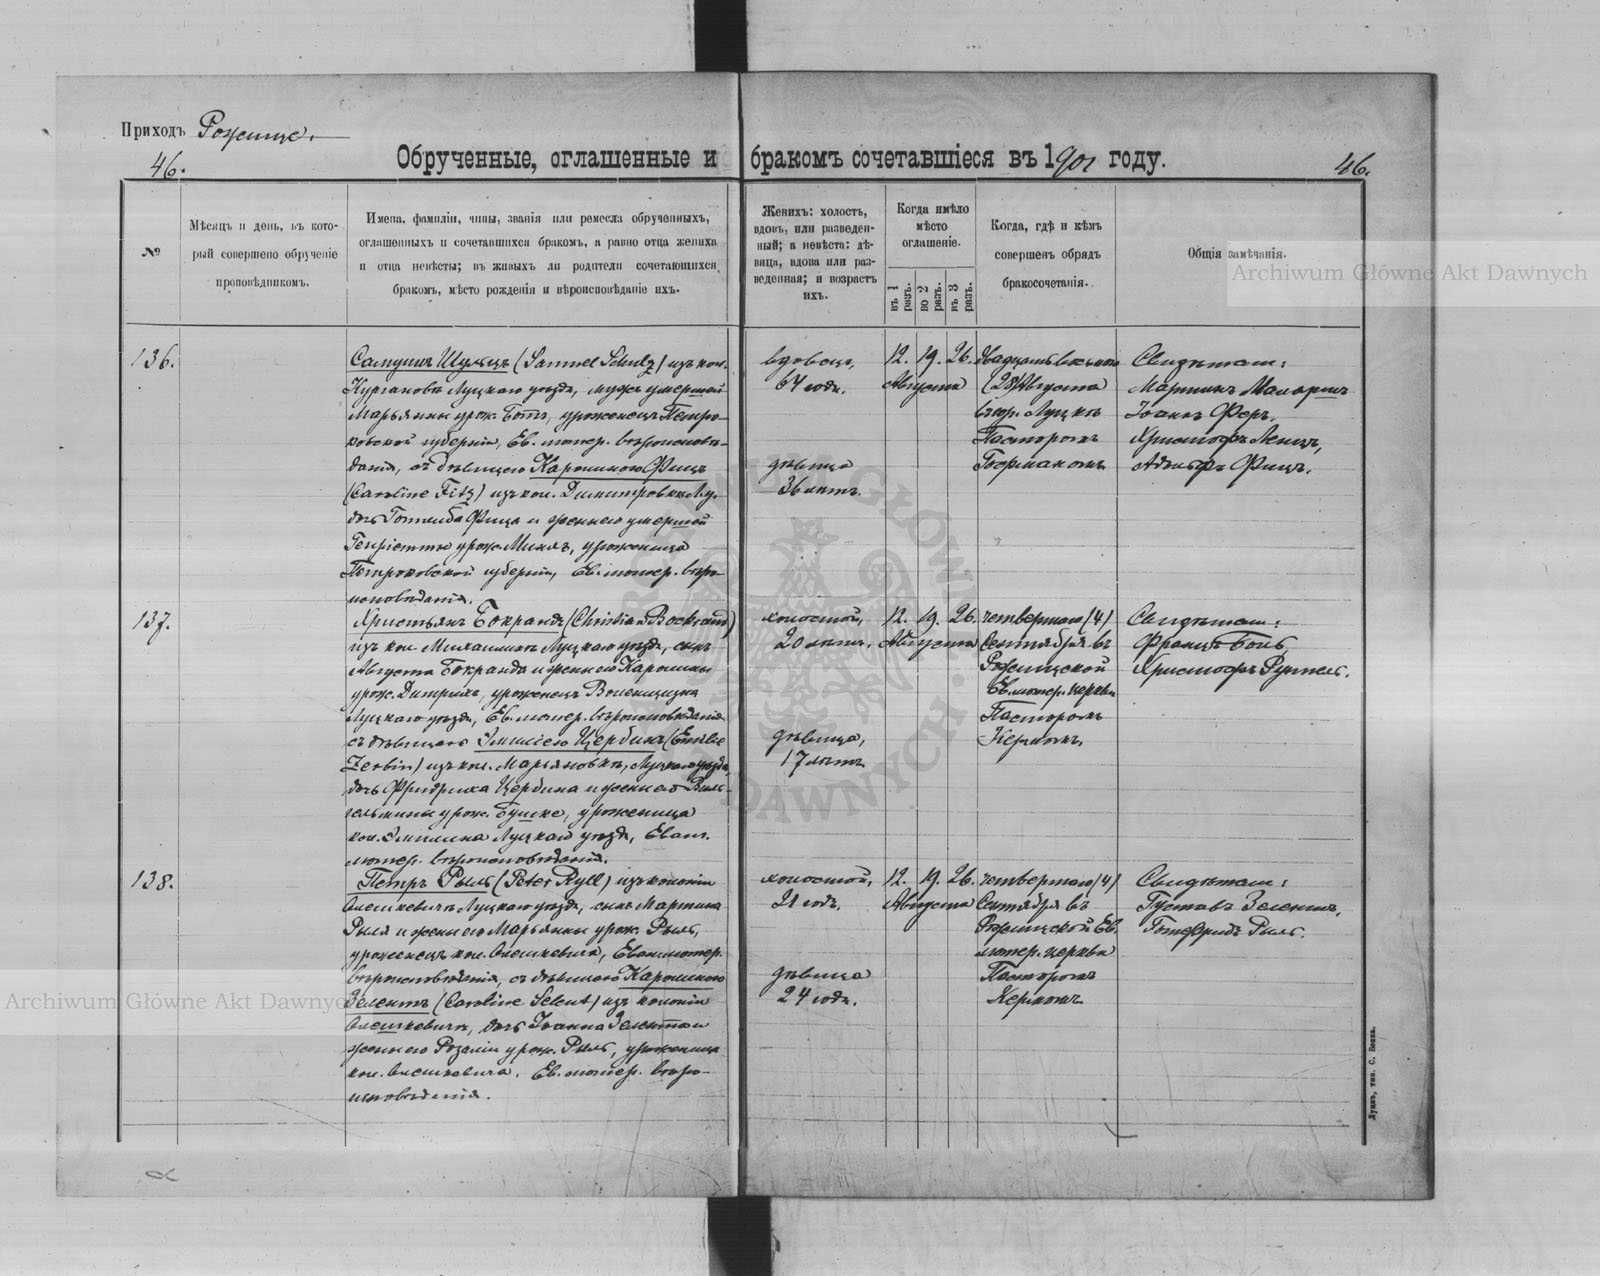 Приходъ Рожище.
46.
Обрученные, оглашенные и бракомъ сочетавшіеся въ 1901 году.
46.
№
Мѣсяцъ и день, въ кото-
рый совершено обрученіе
проповѣдникомъ.
Имена, фамиліи, чины, званія или ремесла обрученныхъ,
оглашенныхъ и сочетавшихся бракомъ, а равно отца жениха
и отца невѣсты; въ живыхъ ли родители сочетающихся
бракомъ, мѣсто рожденія и вѣроисповѣданіе ихъ.
Женихъ: холостъ,
вдовъ, или разведен-
ный; а невѣста: дѣ-
вица, вдова или раз-
веденная; и возрастъ
ихъ.
Когда имѣло
мѣсто
оглашеніе.
въ 1 разъ.
во 2 разъ.
въ 3 разъ.
Когда, гдѣ и кѣмъ
совершенъ обрядъ
бракосочетанія.
Общія замѣчанія.
Archiwum Główne Akt Dawnych
136.
Самуилъ Шульцъ (Samuel Schulz) изъ кол.
Кургановъ Луцкаго уѣзда, мужъ умершей
Марьянны урож. Ботъ, уроженецъ Петро-
ковской губерніи, Ев. лютер. вѣроисповѣ-
данія, съ дѣвицею Каролиною Фицъ
(Caroline Fitz) изъ кол. Димитровки Лу.
дочь Готлиба Фица и жены его умершей
Генріетты урож. Минъ, уроженица
Петроковской губерніи, Ев. лютер. вѣро-
исповѣданія.
вдовецъ,
64 года.
дѣвица
36 лѣтъ.
12. 19. 26.
Августа
двадцать восьмого
(28) Августа
въ гор. Луцкѣ
Пасторомъ
Германомъ
Свидѣтели:
Мартинъ
Іоаннъ Феръ,
Христофъ Ленцъ,
Адольфъ Фицъ.
137.
Христьянъ Бокрандъ (Christian Bockrand)
изъ кол. Михалинъ Луцкаго уѣзда, сынъ
Августа Бокранда и жены его Каролины
урож. Дитрихъ, уроженецъ
Луцкаго уѣзда, Ев. лютер. вѣроисповѣданія
съ дѣвицею Эмиліею Цербинъ (Emilie
Zerbin) изъ кол. Марьяновки, Луцкаго уѣзда,
дочь Фридриха Цербина и жены его Виль-
гельмины урож. Бушке, уроженица
кол. Эмилина Луцкаго уѣзда, Еванг.
лютер. вѣроисповѣданія.
холостой,
20 лѣтъ.
дѣвица,
17 лѣтъ
12. 19. 26.
Августа
четвертаго (4)
Сентября въ
Рожищской
Ев. лютер. церкви
Пасторомъ
Кермомъ.
Свидѣтели:
Францъ Бонъ,
Христофъ
138.
Петръ Рыль (Peter Ryll) изъ колоніи
Олешкевичъ Луцкаго уѣзда, сынъ Мартина
Рыля и жены его Марьянны урож. Рыль,
уроженецъ кол. Олешкевича, Еванг. лютер.
вѣроисповѣданія, съ дѣвицею Каролиною
Зелентъ (Caroline Selent) изъ колоніи
Олешкевичъ, дочь Іоанна Зелента и
жены его Розаліи урож. Рыль, уроженица
кол. Олешкевича, Ев. лютер. вѣро-
исповѣданія.
холостой,
21 годъ.
дѣвица
24 года.
12. 19. 26.
Августа
четвертаго (4)
Сентября въ
Рожищской Ев.
лютер. церкви
Пасторомъ
Кермомъ
Свидѣтели:
Густавъ Зелентъ,
Готфридъ Рыль.
Archiwum Główne Akt Dawnych